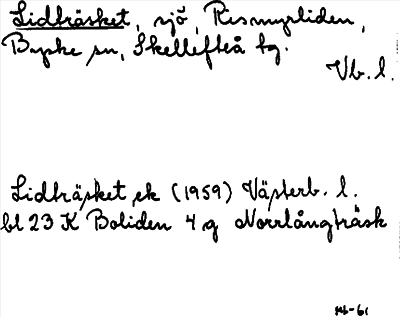 Lidträsket, sjö, Rismyrliden,
Byske sn, Skellefteå tg.
Vb. l.
Lidträsket ek (1959) Västerb. l.
bl 23 K Boliden 4 g Norrlångträsk
-61